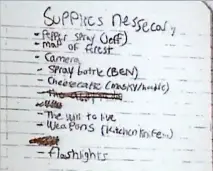 Supplies Nessecary
- Pepper spray (Jeff)
- map of forest
- Camera
- Spray bottle (BEN)
- Cheesecake (masky/hoodie)
- The
- The will to live
- Weapons (Kitchen knife)
- flashlights